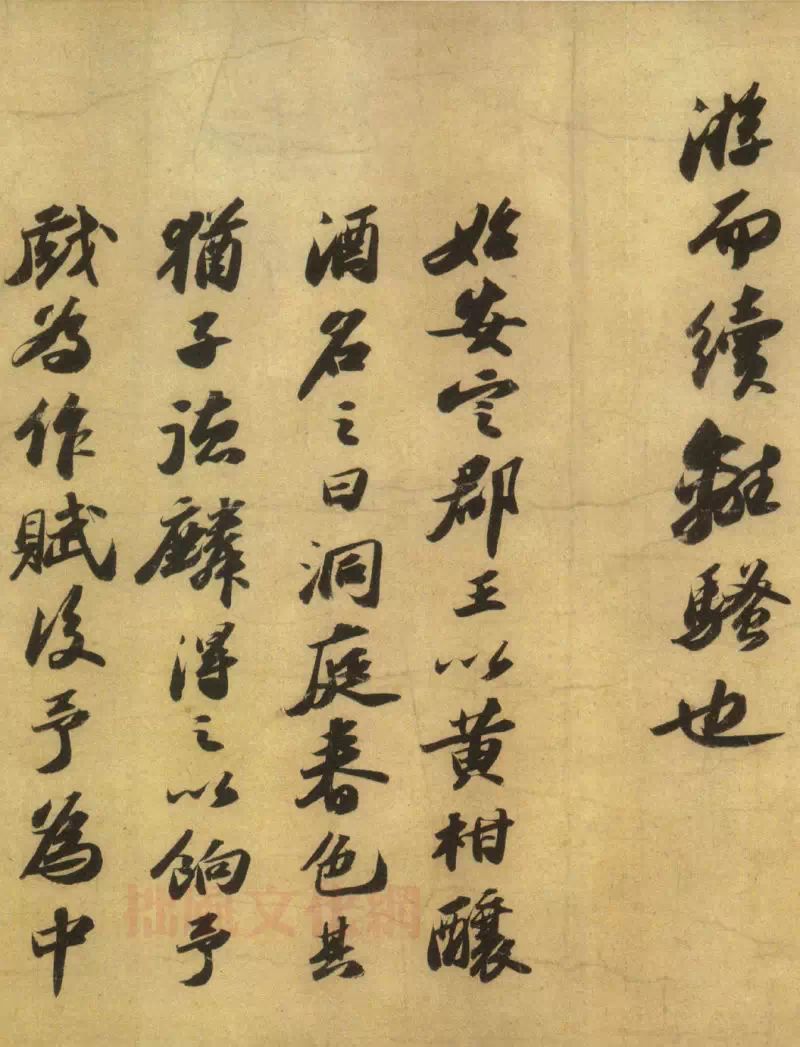 游而續離騷也
始安定郡王以黃柑釀
酒名之曰洞庭春色其
猶子德麟得之以餉予
戲為作賦後予為中
拙風文化網